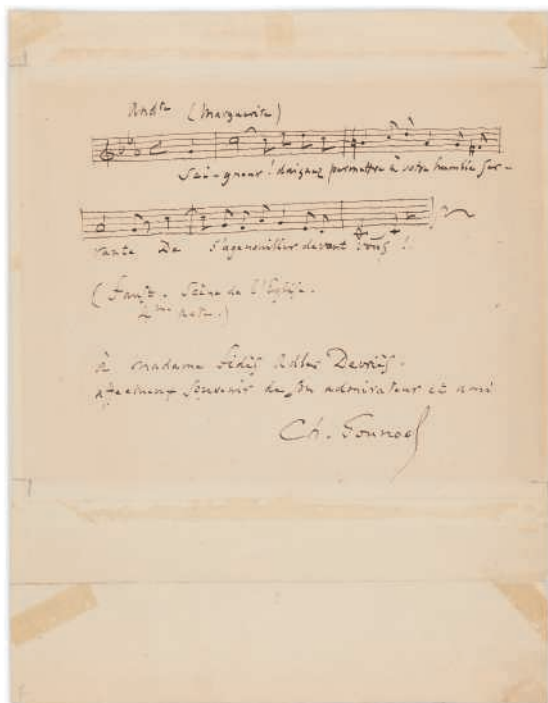 Andte (Marguerite)
Sei-gneur! daignez permettre à votre humble ser-
vante De s'agenouiller devant vous!!
(Faust. Scène de l'Église.
Acte.)
à madame Fidès Adler Devriès.
affectueux souvenir de son admirateur et ami
Ch. Gounod